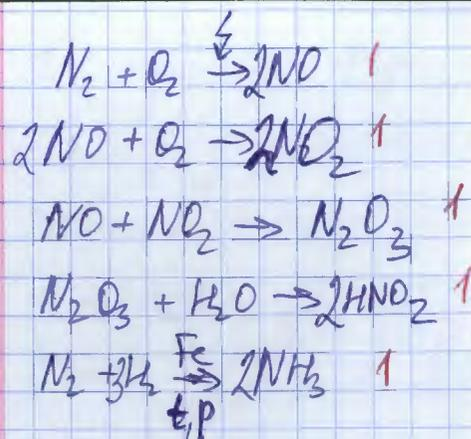 N₂ + O₂ → 2NO 1
2NO + O₂ → 2NO₂ 1
NO + NO₂ → N₂O₃ 1
N₂O₃ + H₂O → 2HNO₂ 1
Fe
N₂ + 3H₂ → 2NH₃ 1
t, p